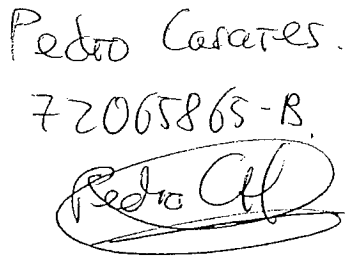 Pedro Casares.
72065865-B.
Pedro